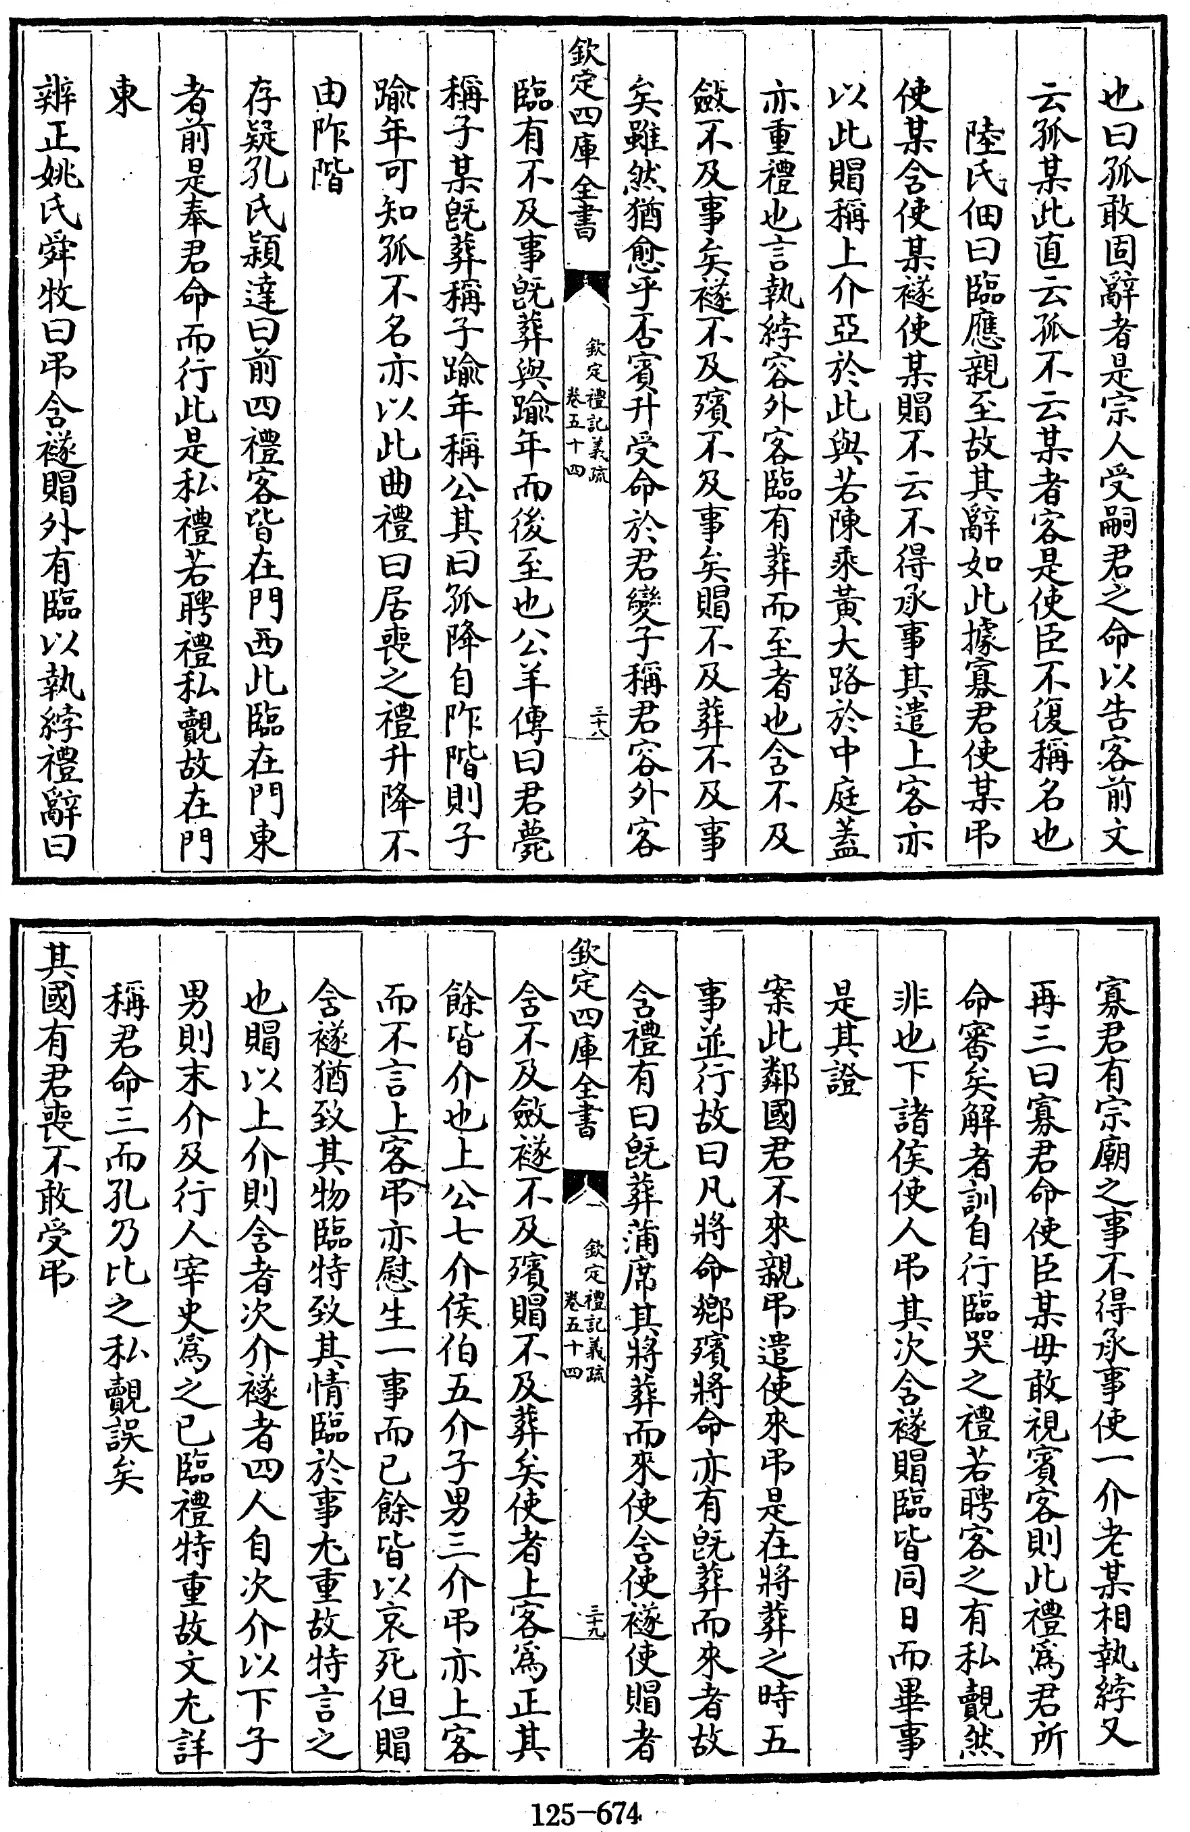 也曰孤敢固辭者是宗人受嗣君之命以告客前文
云孤某此直云孤不云某者客是使臣不復稱名也
陸氏佃曰臨應親至故其辭如此據寡君使某弔
使某含使某襚使某賵不云不得承事其遣上客亦
以此賵稱上介亞於此與若陳乘黃大路於中庭蓋
亦重禮也言執綍容外客臨有葬而至者也含不及
斂不及事矣襚不及殯不及事矣賵不及葬不及事
矣雖然猶愈乎否賓升受命於君變子稱君容外客
欽定四庫全書
欽定禮記義疏
卷五十四
三十八
臨有不及事既葬與踰年而後至也公羊傳曰君薨
稱子某既葬稱子踰年稱公其曰孤降自阼階則子
踰年可知孤不名亦以此曲禮曰居喪之禮升降不
由阼階
存疑孔氏穎達曰前四禮客皆在門西此臨在門東
者前是奉君命而行此是私禮若聘禮私覿故在門
東
辨正姚氏舜牧曰弔含襚賵外有臨以執綍禮辭曰
寡君有宗廟之事不得承事使一介老某相執綍又
再三曰寡君命使臣某毋敢視賓客則此禮為君所
命審矣解者訓自行臨哭之禮若聘客之有私覿然
非也下諸侯使人弔其次含襚賵臨皆同日而畢事
是其證
案此鄰國君不來親弔遣使來弔是在將葬之時五
事並行故曰凡將命鄉殯將命亦有既葬而來者故
含禮有曰既葬蒲席其將葬而來使含使襚使賵者
欽定四庫全書
欽定禮記義疏
卷五十四
三十九
含不及斂襚不及殯賵不及葬矣使者上客為正其
餘皆介也上公七介侯伯五介子男三介弔亦上客
而不言上客弔亦慰生一事而已餘皆以哀死但賵
含襚猶致其物臨特致其情臨於事尢重故特言之
也賵以上介則含者次介襚者四人自次介以下子
男則末介及行人宰史為之已臨禮特重故文尢詳
稱君命三而孔乃比之私覿誤矣
其國有君喪不敢受弔
125-674